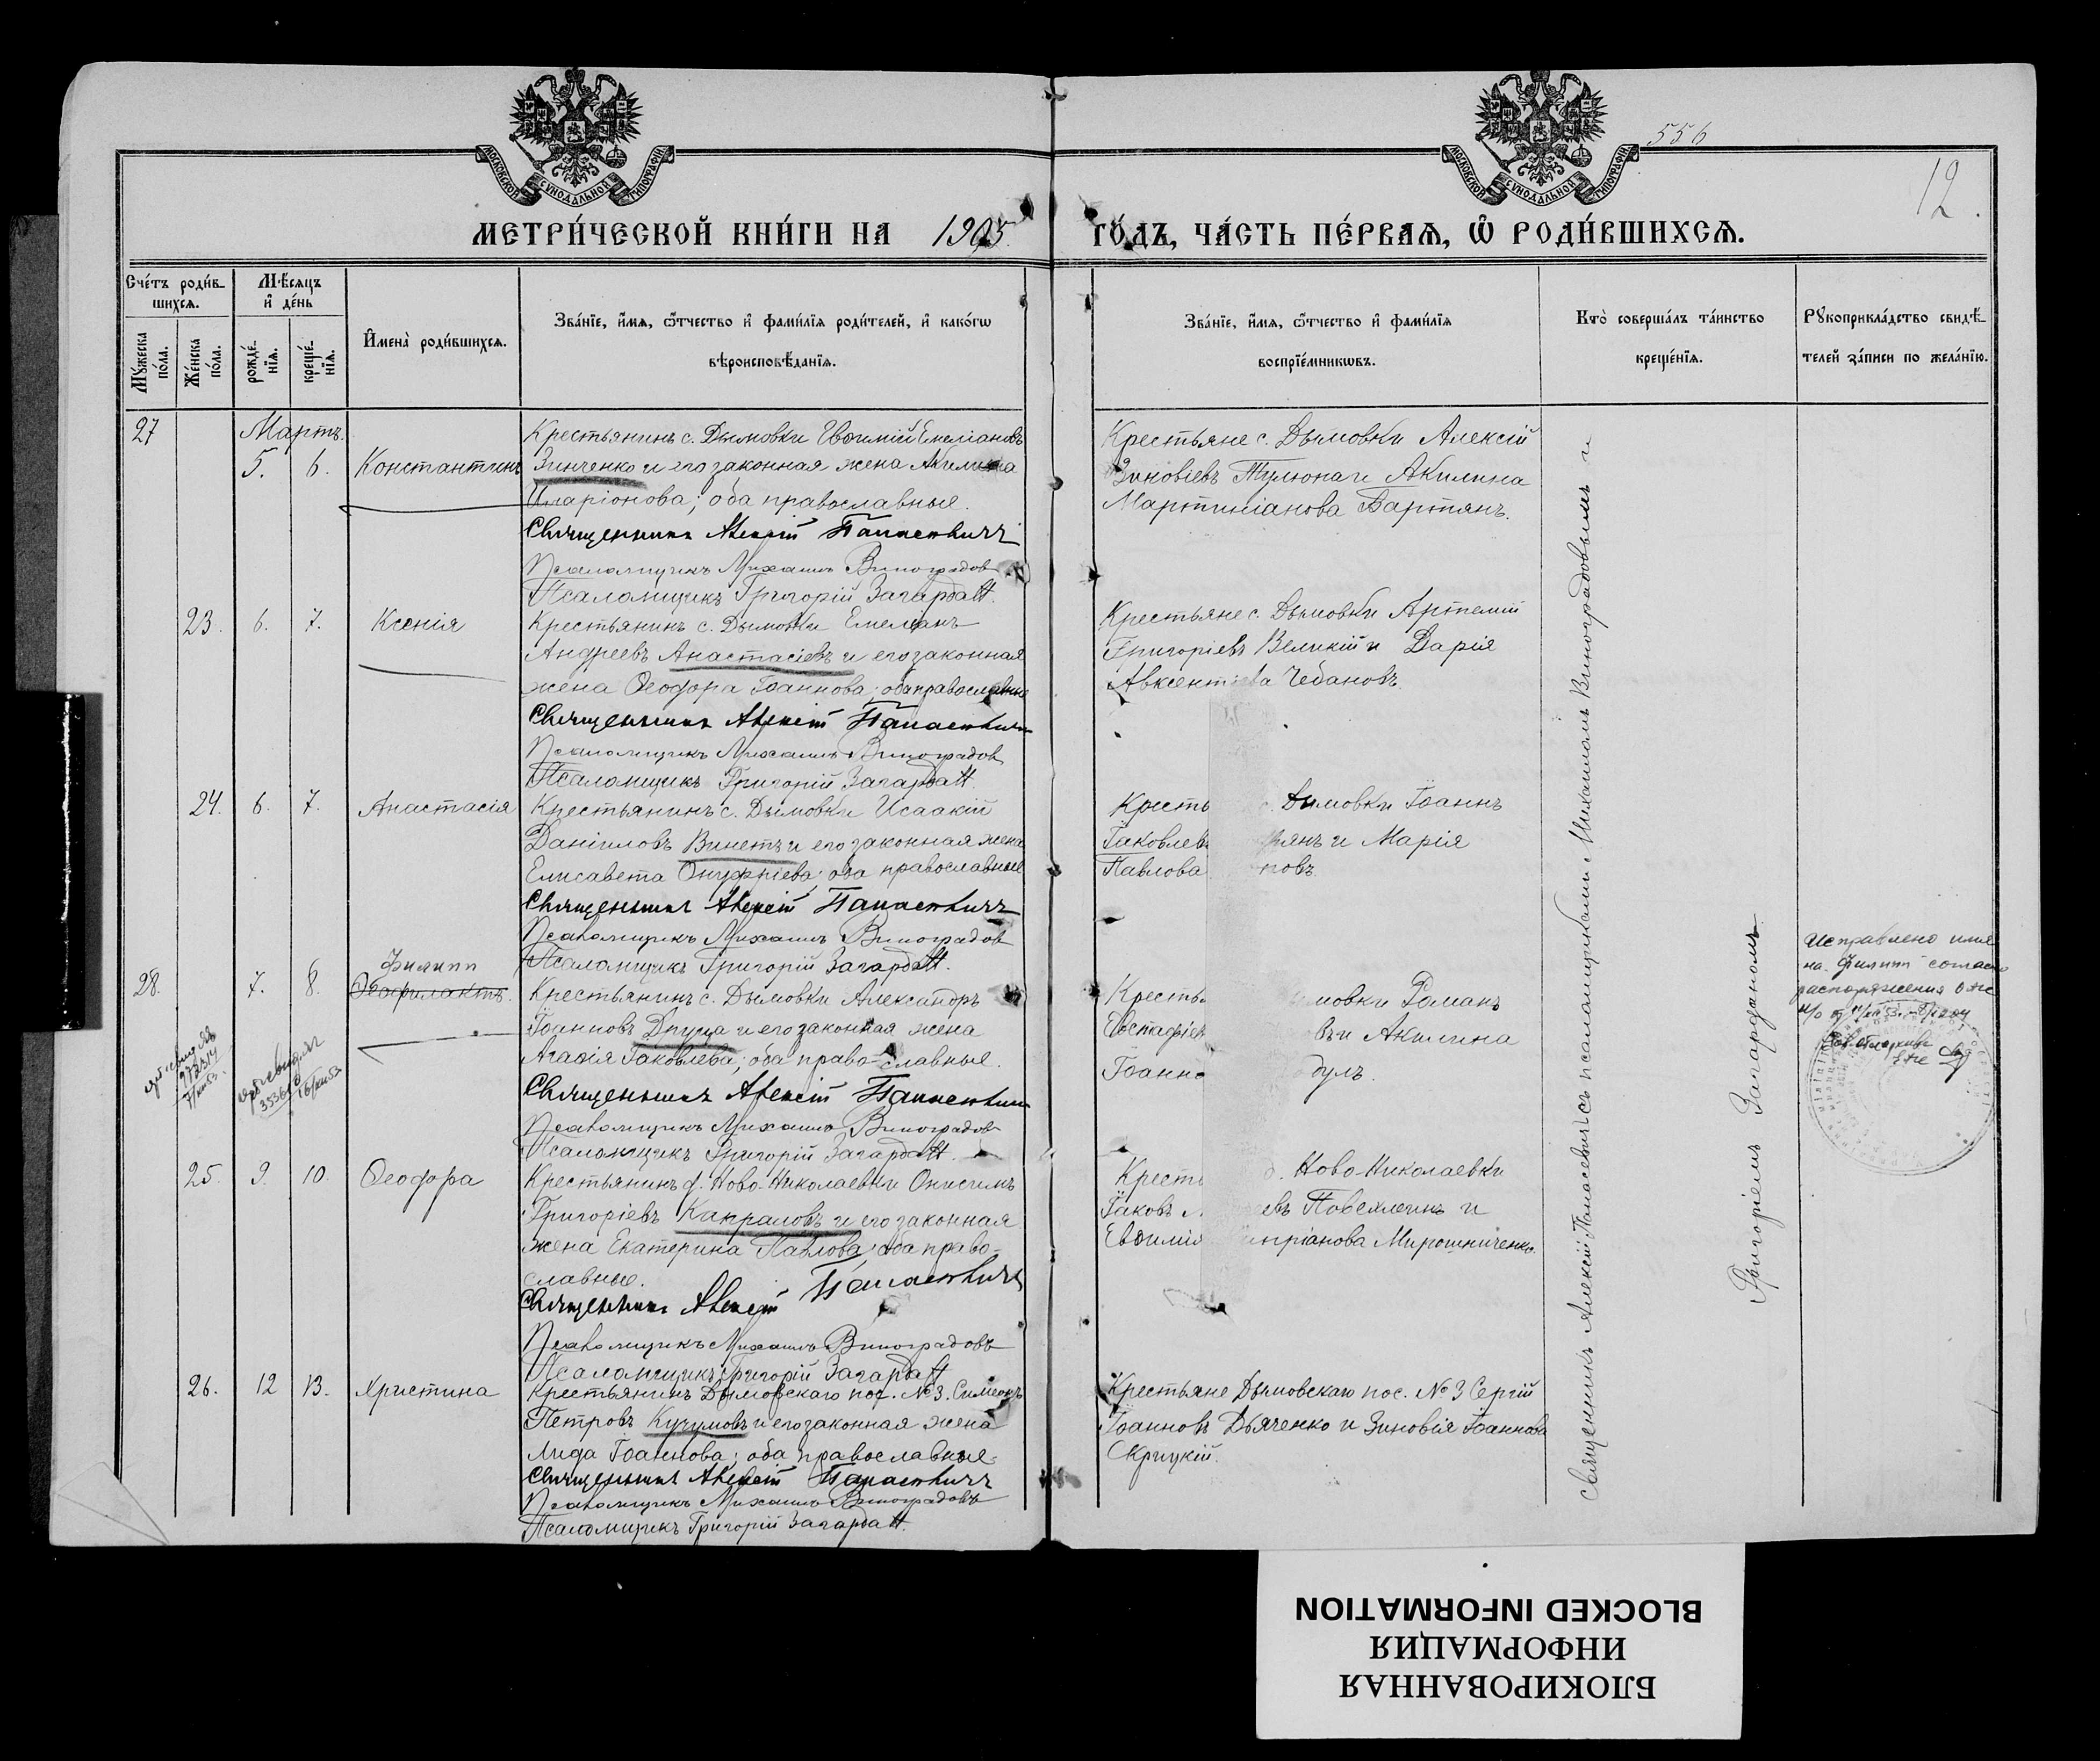 556
12.
МОСКОВСКОЙ СѴНОДАЛЬНОЙ ТИПОГРАФІИ
МОСКОВСКОЙ СѴНОДАЛЬНОЙ ТИПОГРАФІИ
МЕТРИ́ЧЕСКОЙ КНИ́ГИ НА 1905 ГО́ДЪ, ЧА́СТЬ ПЕ́РВАѦ, Ѽ РОДИ́ВШИХСѦ.
Сче́тъ роди́в-
шихсѧ.
Мꙋ́жеска
по́ла.
Же́нска
по́ла.
Мѣ́сѧцъ
и҆ де́нь
рожде́-
нїѧ.
креще́-
нїѧ.
И҆мена̀ роди́вшихсѧ.
Зва́нїе, и҆́мѧ, ѻ҆́тчество и҆ фами́лїѧ роди́телей, и҆ како́гѡ
вѣроисповѣ́данїѧ.
Зва́нїе, и҆́мѧ, ѻ҆́тчество и҆ фами́лїѧ
воспрїе́мникѡвъ.
Кто̀ соверша́лъ та́инство
креще́нїѧ.
Рꙋкоприкла́дство свидѣ́-
телей за́писи по жела́нїю.
27
Мартъ.
5. 6. Константинъ
Крестьянинъ с. Дымовки Евѳимій Емеліановъ
Зинченко и его законная жена Акилина
Иларіонова; оба православные.
Священникъ Алексій Папасевичъ
Псаломщикъ Михаилъ Виноградовъ
Псаломщикъ Григорій Загарданъ.
Крестьяне с. Дымовки Алексій
Зиновіевъ Тулюпа и Акилина
Мартиніанова Вартянъ.
23. 6. 7. Ксенія
Крестьянинъ с. Дымовки Емеліанъ
Андреевъ Анастасіевъ и его законная
жена Ѳеодора Іоаннова; оба православные
Священникъ Алексій Папасевичъ
Псаломщикъ Михаилъ Виноградовъ
Псаломщикъ Григорій Загарданъ.
Крестьяне с. Дымовки Артемій
Григоріевъ Великій и Дарія
Авксентіева Чебановъ.
24. 6. 7. Анастасія
Крестьянинъ с. Дымовки Исаакій
Даніиловъ Винетъ и его законная жена
Елисавета Онуфріева; оба православные
Священникъ Алексій Папасевичъ
Псаломщикъ Михаилъ Виноградовъ
Псаломщикъ Григорій Загарданъ.
Кресть с. Дымовки Іоаннъ
Іаковлевъ янъ и Марія
Павлова новъ
Филипп
28. 7. 8. Ѳеофилактъ.
Крестьянинъ с. Дымовки Александръ
Іоанновъ Друца и его законная жена
Агаѳія Іаковлева; оба право-славные.
Священникъ Алексій Папасевичъ
Псаломщикъ Михаилъ Виноградовъ
Псаломщикъ Григорій Загарданъ.
Кресть мовки Романъ
Евстафіев въ и Акилина
Іоанно дулъ.
Исправлено имя
на Филипп согласно
распоряжения ОАГС
25. 9. 10. Ѳеодора
Крестьянинъ д. Ново-Николаевки Онисимъ
Григоріевъ Капраловъ и его законная
жена Екатерина Павлова; оба право-
славные.
Священникъ Алексій Папасевичъ
Псаломщикъ Михаилъ Виноградовъ
Псаломщикъ Григорій Загарданъ
Кресть д. Ново-Николаевки
Іаковъ евъ и
Евѳимія пріанова Мирошниченко.
26. 12 13. Христина
Крестьянинъ Дымовскаго пос. №3. Симеонъ
Петровъ Кучумовъ и его законная жена
Лида Іоаннова; оба православные.
Священникъ Алексій Папасевичъ
Псаломщикъ Михаилъ Виноградовъ
Псаломщикъ Григорій Загарданъ.
Крестьяне Дымовскаго пос. №3 Сергій
Іоанновъ Дьяченко и Зиновія Іоаннова
Скрицкій.
Священникъ Алексій Папасевичъ съ псаломщиками Михаиломъ Виноградовымъ и
Григоріемъ Загарданомъ
БЛОКИРОВАННАЯ
ИНФОРМАЦИЯ
BLOCKED INFORMATION